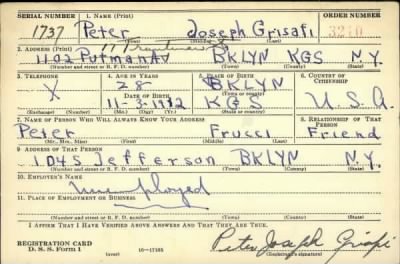 SERIAL NUMBER 1. NAME (Print) ORDER NUMBER
1737 Peter Joseph Grisafi 3210
(First) (Middle) (Last)
2. ADDRESS (Print)
1102 Putman Av BKLYN KGS N.Y.
(Number and street or R. F. D. number) (Town) (County) (State)
3. TELEPHONE 4. AGE IN YEARS 5. PLACE OF BIRTH 6. COUNTRY OF CITIZENSHIP
X 28 BKLYN
DATE OF BIRTH (Town or county)
11-3-1912 KGS U.S.A
(Exchange) (Number) (Mo.) (Day) (Yr.) (State or country)
7. NAME OF PERSON WHO WILL ALWAYS KNOW YOUR ADDRESS 8. RELATIONSHIP OF THAT PERSON
Peter Frucci Friend
(Mr., Mrs., Miss) (First) (Middle) (Last)
9. ADDRESS OF THAT PERSON
1045 Jefferson BKLYN N.Y.
(Number and street or R. F. D. number) (Town) (County) (State)
10. EMPLOYER'S NAME
Unemployed
11. PLACE OF EMPLOYMENT OR BUSINESS
(Number and street or R. F. D. number) (Town) (County) (State)
I AFFIRM THAT I HAVE VERIFIED ABOVE ANSWERS AND THAT THEY ARE TRUE.
REGISTRATION CARD
D. S. S. Form 1 (over) 16-17105 Peter Joseph Grisafi
(Registrant's signature)